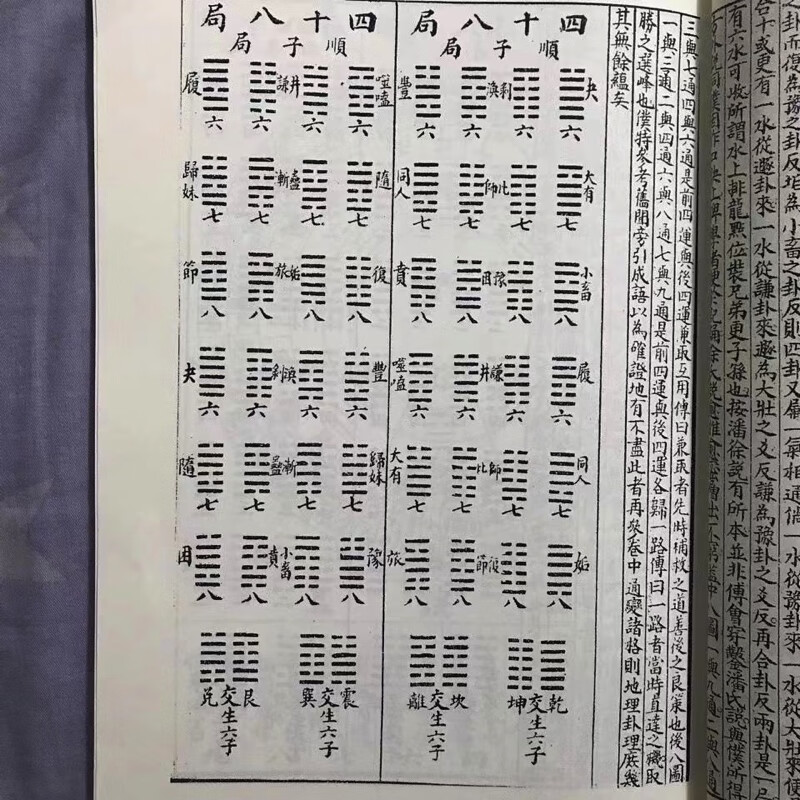 之卦而復為豫之卦反垢為小畜之卦反則四卦又屬一氣相通倘一水從豫卦來一水從大壯來便
合十或更有一水從遯卦來一水從謙卦來遯為大壯之爻反謙為豫卦之爻反再合卦反兩卦是一
有六水可收所謂水上排龍點位裝兄弟更子孫也按潘徐説有所本並非傅會穿鑿潘氏説與僕所得
三與七通四與六通是前四運與後四運兼取互用傳曰兼取者先時補救之道善後之良策也後八圖
一與三通二與四通六與八通七與九通是前四運與後四運各歸一路傳曰一路者當時直達之機取
勝之選峰也僕特參考舊聞旁引成語以為確證地有不盡此者再參卷中通變諸格則地理卦理庶幾
其無餘蘊矣
四十八局
順子局
夬 剝 渙 豐
六 六 六 六
大有 比 師 同人
七 七 七 七
小畜 豫 困 賁
八 八 八 八
履 謙 井 噬嗑
六 六 六 六
同人 師 比 大有
七 七 七 七
姤 復 節 旅
八 八 八 八
乾坤交生六子
坎離交生六子
四十八局
順子局
噬嗑 井 謙 履
六 六 六 六
隨 蠱 漸 歸妹
七 七 七 七
復 姤 旅 節
八 八 八 八
豐 渙 剝 夬
六 六 六 六
歸妹 漸 蠱 隨
七 七 七 七
豫 小畜 賁 困
八 八 八 八
震巽交生六子
艮兌交生六子